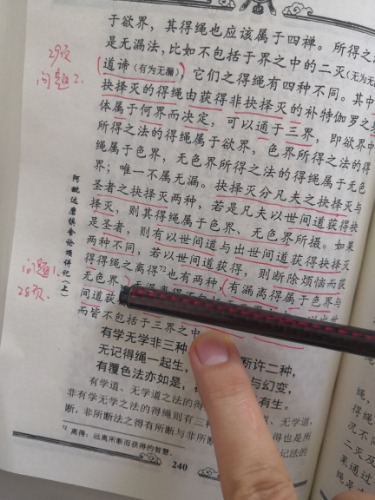 于欲界，其得绳也应该属于四禅。所得之
是无漏法，比如不包括于界之中的二灭（无为无
道谛（有为无漏）它们之得绳有四种不同。其中
抉择灭的得绳由获得非抉择灭的补特伽罗之
体属于何界而决定，可以通于三界，即欲界中
所得之法的得绳属于欲界，色界所得之法的得
绳属于色界，无色界所得之法的得绳属于无色
界；唯一不属无漏。抉择灭分凡夫之抉择灭与
圣者之抉择灭两种，若是凡夫以世间道获得抉
择灭，则其得绳属于色界、无色界所摄。如果
是圣者，则有以世间道与出世间道获得抉择灭
两种不同，若以世间道获得，则断除烦恼而获
得得绳之离得72也有两种（有漏离得属于色界与
无色界
间道获
而皆不包括于三界之中
有学无学非三种 所许二种，
无记得绳一起生， 与幻变，
有覆色法亦如是， 有生。
有学道、无学道之法的得 学道、无学道，
非有学无学之法的得绳则有三种
断，非所断法之得有所断与非所断
72 离得：远离所断而获得的智慧。
240
阿毗达磨俱舍论颂释记（上）
29页
问题2.
问题1.
28页.